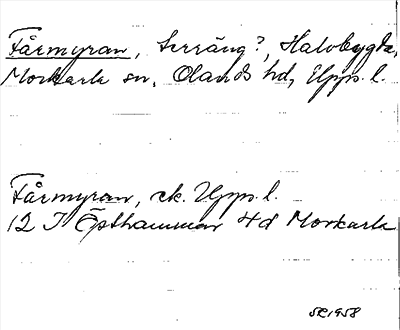 Fårmyran, terräng?, Halvbygda,
Morkarla sn, Olands hd, Upps. l.
Fårmyran, ek. Upps. l.
12 I Östhammar 4d Morkarla
SR 1958